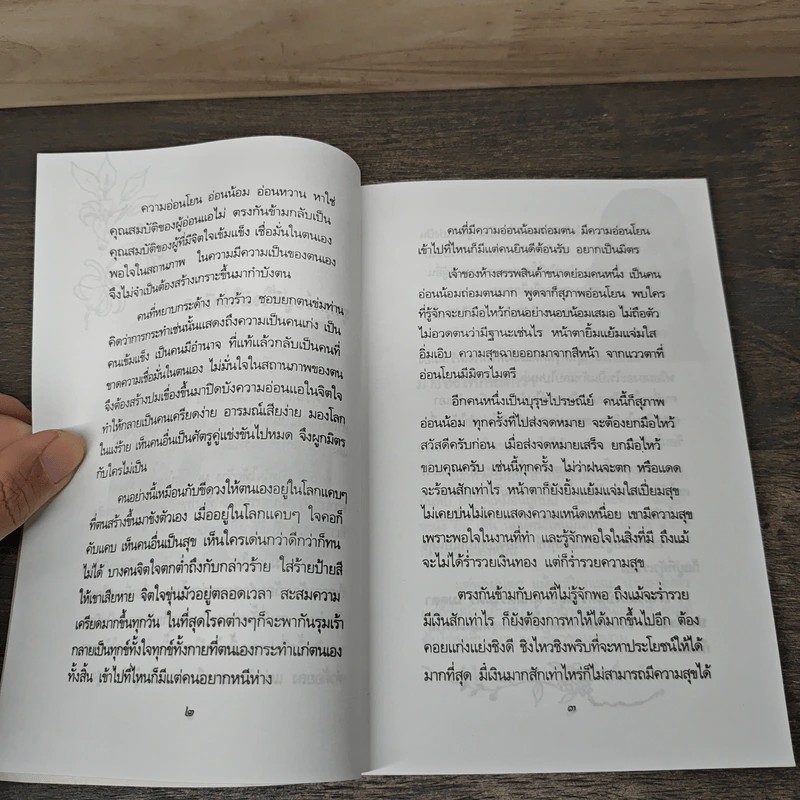 ความอ่อนโยน อ่อนน้อม อ่อนหวาน หาใช่
คุณสมบัติของผู้อ่อนแอไม่ ตรงกันข้ามกลับเป็น
คุณสมบัติของผู้ที่มีจิตใจเข้มแข็ง เชื่อมั่นในตนเอง
พอใจในสถานภาพ ในความมีความเป็นของตนเอง
จึงไม่จำเป็นต้องสร้างเกราะขึ้นมากำบังตน
คนที่หยาบกระด้าง ก้าวร้าว ชอบยกตนข่มท่าน
คิดว่าการกระทำเช่นนั้นแสดงถึงความเป็นคนเก่ง เป็น
คนเข้มแข็ง เป็นคนมีอำนาจ ที่แท้แล้วกลับเป็นคนที่
ขาดความเชื่อมั่นในตนเอง ไม่มั่นใจในสถานภาพของตน
จึงต้องสร้างปมเขื่องขึ้นมาปิดบังความอ่อนแอในจิตใจ
ทำให้กลายเป็นคนเครียดง่าย อารมณ์เสียง่าย มองโลก
ในแง่ร้าย เห็นคนอื่นเป็นศัตรูคู่แข่งขันไปหมด จึงผูกมิตร
กับใครไม่เป็น
คนอย่างนี้เหมือนกับขีดวงให้ตนเองอยู่ในโลกแคบๆ
ที่ตนสร้างขึ้นมาขังตัวเอง เมื่ออยู่ในโลกแคบๆ ใจคอก็
คับแคบ เห็นคนอื่นเป็นสุข เห็นใครเด่นกว่าดีกว่าก็ทน
ไม่ได้ บางคนจิตใจตกต่ำถึงกับกล่าวร้าย ใส่ร้ายป้ายสี
ให้เขาเสียหาย จิตใจขุ่นมัวอยู่ตลอดเวลา สะสมความ
เครียดมากขึ้นทุกวัน ในที่สุดโรคต่างๆก็จะพากันรุมเร้า
กลายเป็นทุกข์ทั้งใจทุกข์ทั้งกายที่ตนเองกระทำแก่ตนเอง
ทั้งสิ้น เข้าไปที่ไหนก็มีแต่คนอยากหนีห่าง
๒
คนที่มีความอ่อนน้อมถ่อมตน มีความอ่อนโยน
เข้าไปที่ไหนก็มีแต่คนยินดีต้อนรับ อยากเป็นมิตร
เจ้าของห้างสรรพสินค้าขนาดย่อมคนหนึ่ง เป็นคน
อ่อนน้อมถ่อมตนมาก พูดจาก็สุภาพอ่อนโยน พบใคร
ที่รู้จักจะยกมือไหว้ก่อนอย่างนอบน้อมเสมอ ไม่ถือตัว
ไม่อวดตนว่ามีฐานะเช่นไร หน้าตายิ้มแย้มแจ่มใส
อิ่มเอิบ ความสุขฉายออกมาจากสีหน้า จากแววตาที่
อ่อนโยนมีมิตรไมตรี
อีกคนหนึ่งเป็นบุรุษไปรษณีย์ คนนี้ก็สุภาพ
อ่อนน้อม ทุกครั้งที่ไปส่งจดหมาย จะต้องยกมือไหว้
สวัสดีครับก่อน เมื่อส่งจดหมายเสร็จ ยกมือไหว้
ขอบคุณครับ เช่นนี้ทุกครั้ง ไม่ว่าฝนจะตก หรือแดด
จะร้อนสักเท่าไร หน้าตาก็ยังยิ้มแย้มแจ่มใสเปี่ยมสุข
ไม่เคยบ่นไม่เคยแสดงความเหน็ดเหนื่อย เขามีความสุข
เพราะพอใจในงานที่ทำ และรู้จักพอใจในสิ่งที่มี ถึงแม้
จะไม่ได้ร่ำรวยเงินทอง แต่ก็ร่ำรวยความสุข
ตรงกันข้ามกับคนที่ไม่รู้จักพอ ถึงแม้จะร่ำรวย
มีเงินสักเท่าไร ก็ยังต้องการหาให้ได้มากขึ้นไปอีก ต้อง
คอยแก่งแย่งชิงดี ชิงไหวชิงพริบที่จะหาประโยชน์ให้ได้
มากที่สุด มีเงินมากสักเท่าไหร่ก็ไม่สามารถมีความสุขได้
๓